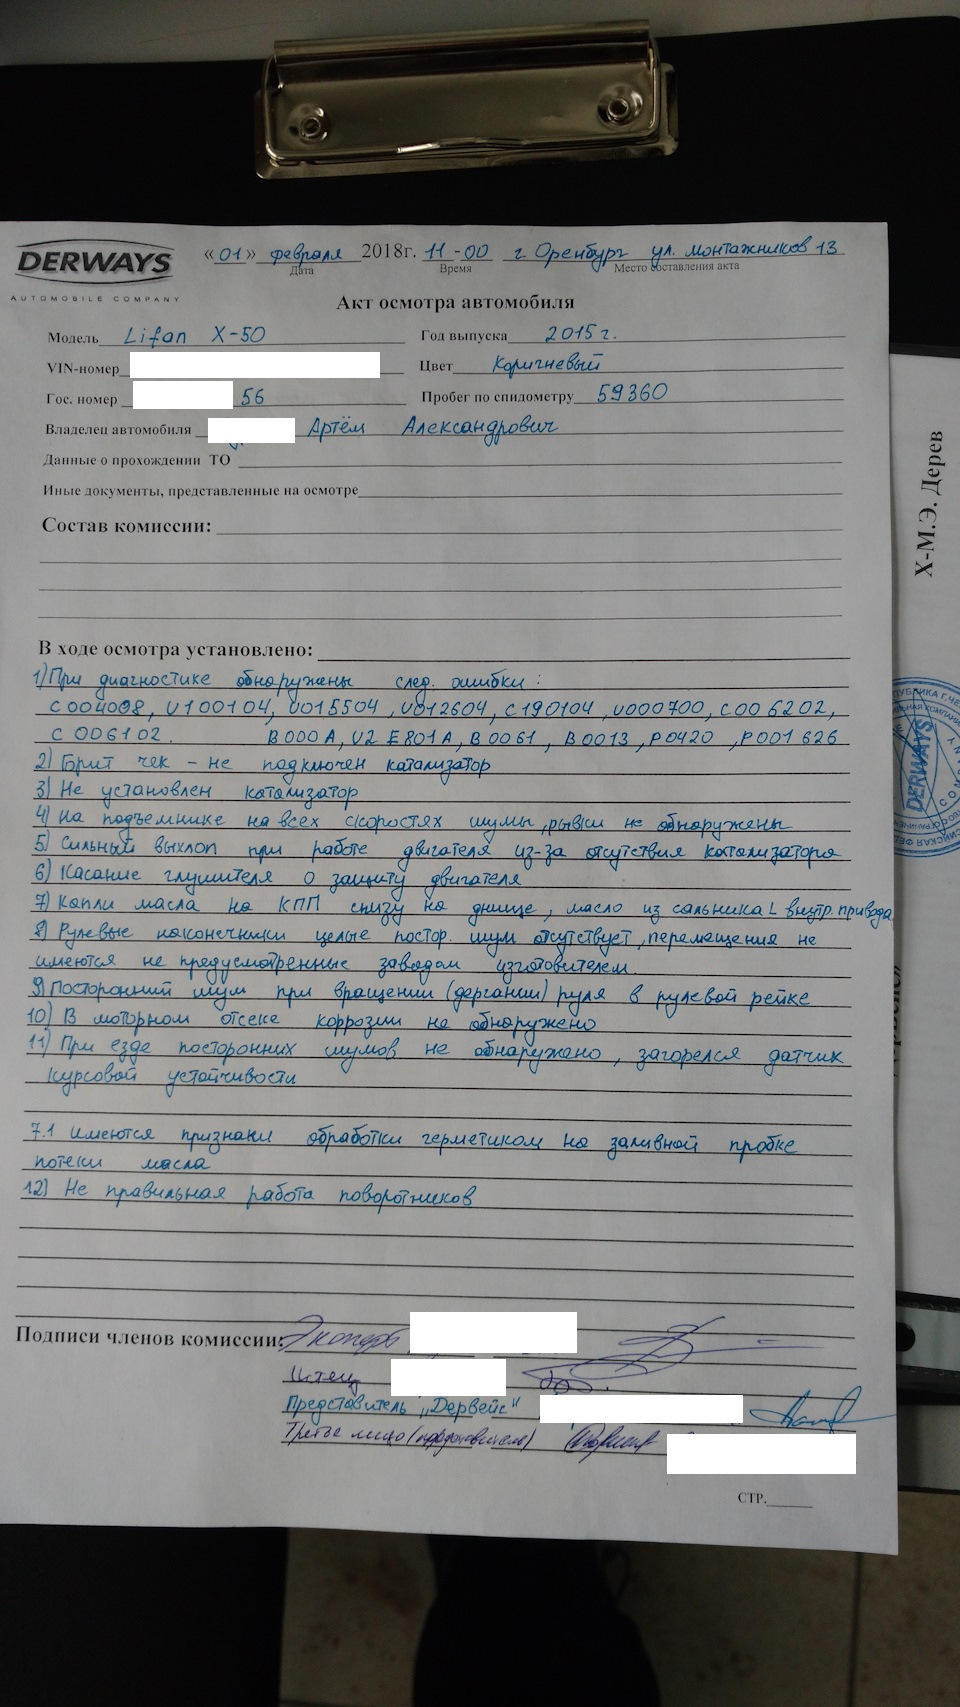 DERWAYS
AUTOMOBILE COMPANY
«01» февраля 2018г. 11-00 г. Оренбург ул. монтажников 13
Дата Время Место составления акта
Акт осмотра автомобиля
Модель Lifan X-50 Год выпуска 2015 г.
VIN-номер Цвет Коричневый
Гос. номер 56 Пробег по спидометру 59360
Владелец автомобиля Артём Александрович
Данные о прохождении ТО
Иные документы, представленные на осмотре
Состав комиссии:
В ходе осмотра установлено:
1) При диагностике обнаружены след. ошибки:
C004008, U100104, U015504, U012604, C190104, U000700, C006202,
C006102. B000A, U2E801A, B0061, B0013, P0420, P001626
2) Горит чек - не подключен катализатор
3) Не установлен катализатор
4) На подъемнике на всех скоростях шумы, рывки не обнаружены
5) Сильный выхлоп при работе двигателя из-за отсутствия катализатора
6) Касание глушителя о защиту двигателя
7) Капли масла на КПП снизу на днище, масло из сальника L внутр. привода
8) Рулевые наконечники целые постор. шум отсутствует, перемещения не
имеются не предусмотренные заводом изготовителем.
9) Посторонний шум при вращении (дергании) руля в рулевой рейке
10) В моторном отсеке коррозии не обнаружено
11) При езде посторонних шумов не обнаружено, загорелся датчик
курсовой устойчивости
7.1 Имеются признаки обработки герметиком на заливной пробке
потеки масла
12) Не правильная работа поворотников
Подписи членов комиссии: Эксперт
Истец
Представитель "Дервейс"
Третье лицо
СТР.
Х-М.Э. Дерев
DERWAYS